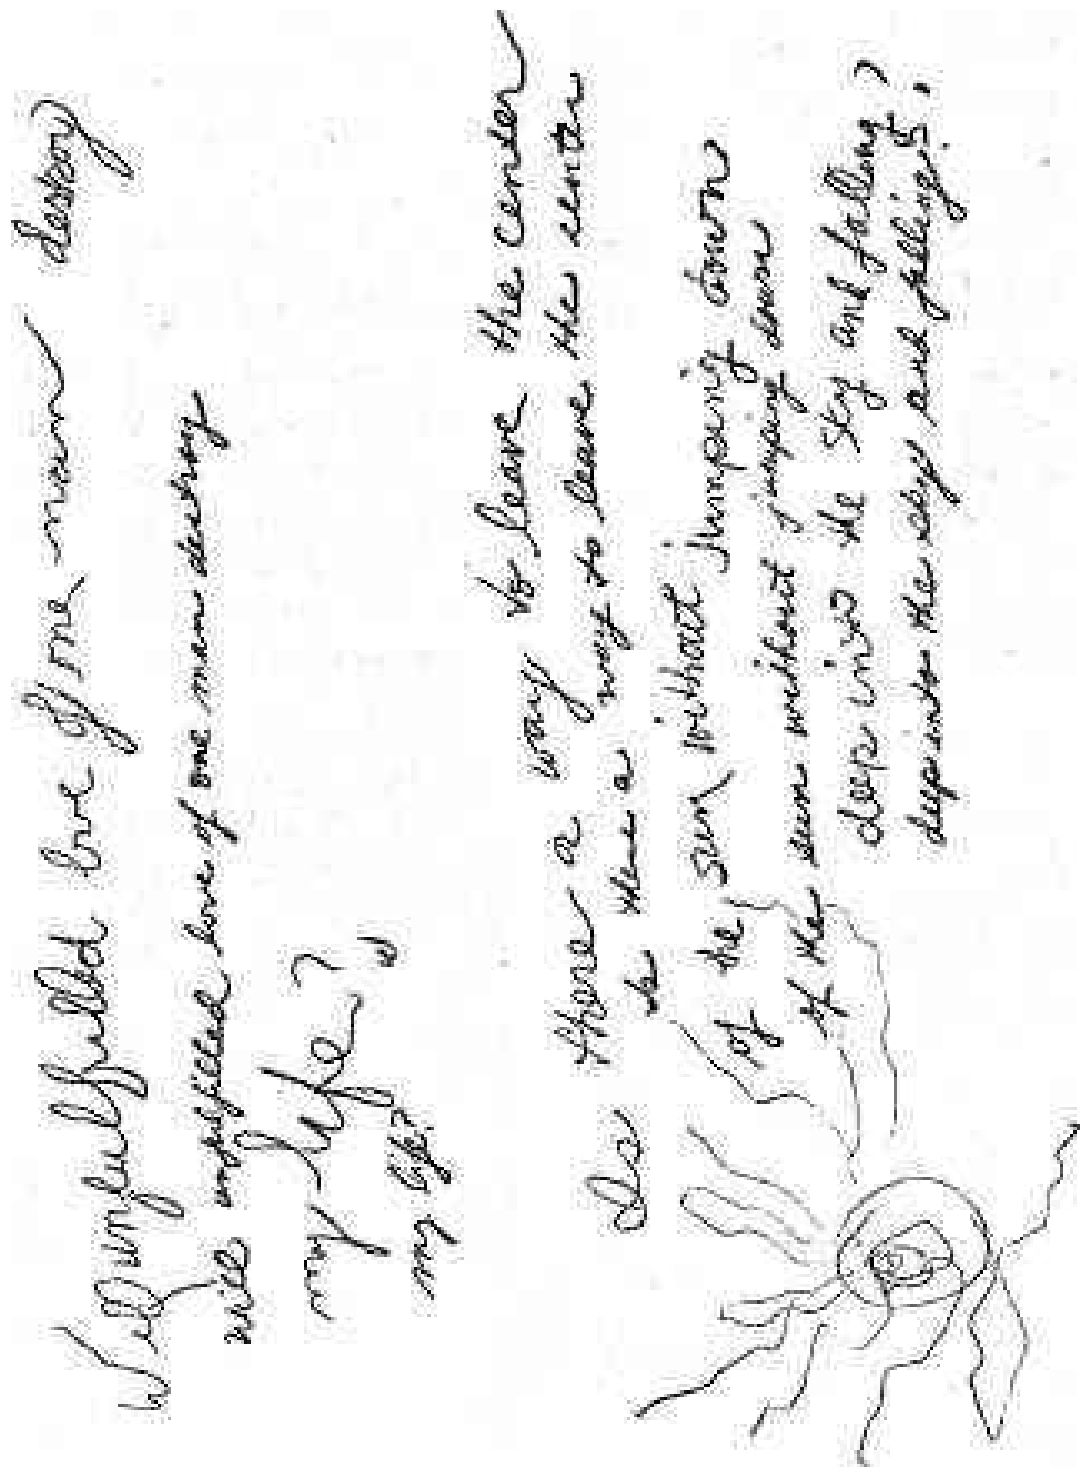 Will unfullfulled love of one man destroy
will unfulfilled love of one man destroy
my life?
my life?
Is there a way to leave the center
is there a way to leave the center
of the sun without jumping down
of the sun without jumping down
deep into the sky and falling?
deep into the sky and falling?